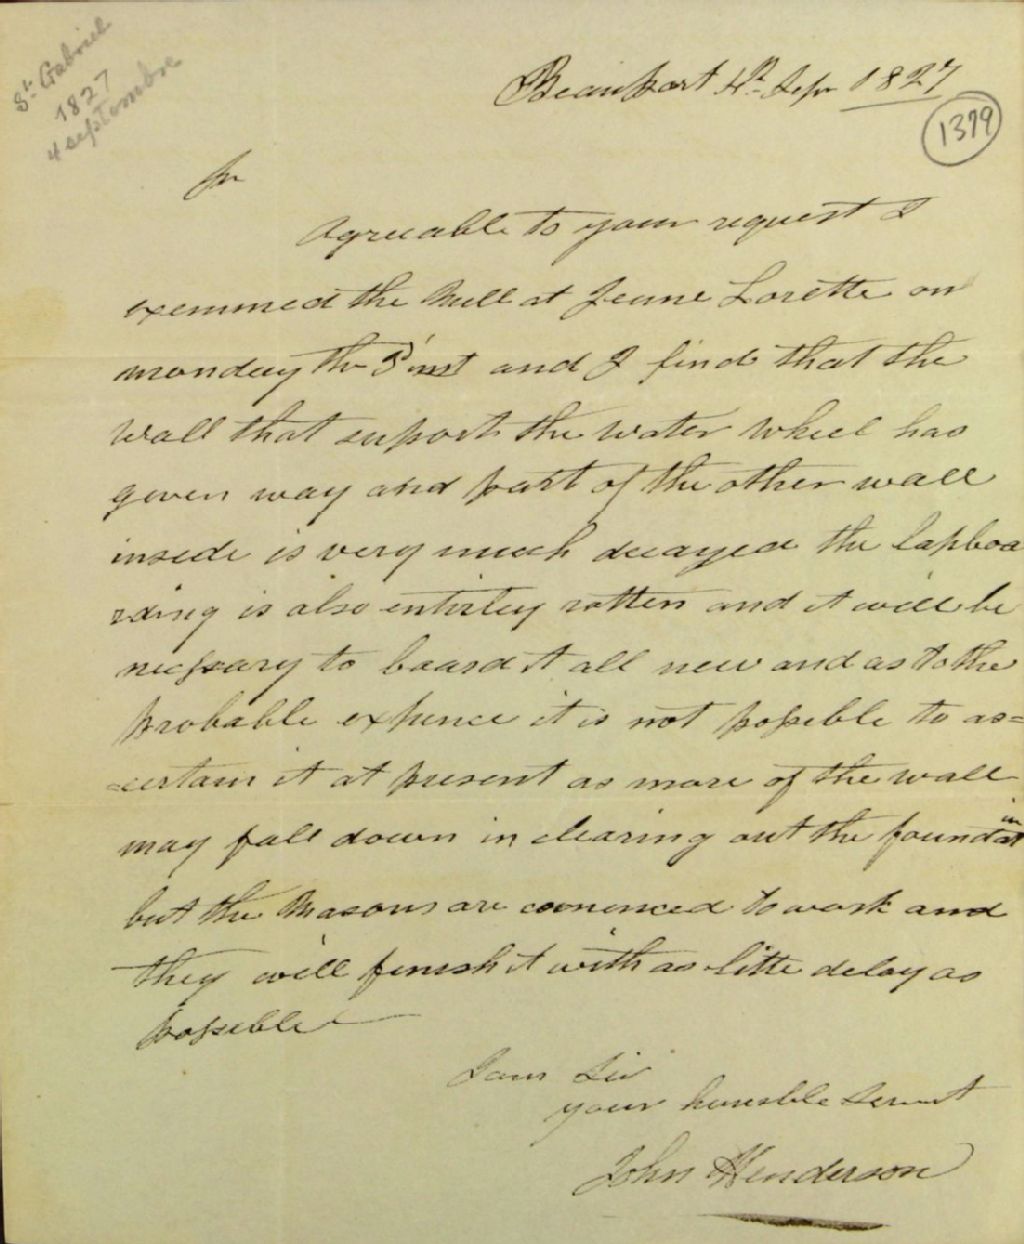 St Gabriel
1827
4 septembre
Beauport 4th Sepr 1827
1379
Sir
Agreeable to your request I
exemined the Mill at Jeune Lorette on
monday the 3 inst and I find that the
Wall that suport the water wheel has
given way and part of the other wall
inside is very much decayed the lapboa
rding is also entirley rotten and it will be
necessary to board it all new and as to the
probable expence it is not possible to as=
=certain it at present as more of the wall
may fall down in clearing out the foundation
but the Masons are comenced to work and
they will finish it with as litte delay as
possible
I am Sir
your humble Servant
John Henderson